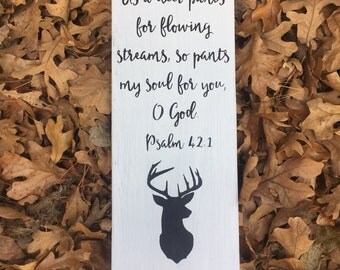 as a deer pants
for flowing
streams, so pants
my soul for you,
O God.
Psalm 42:1